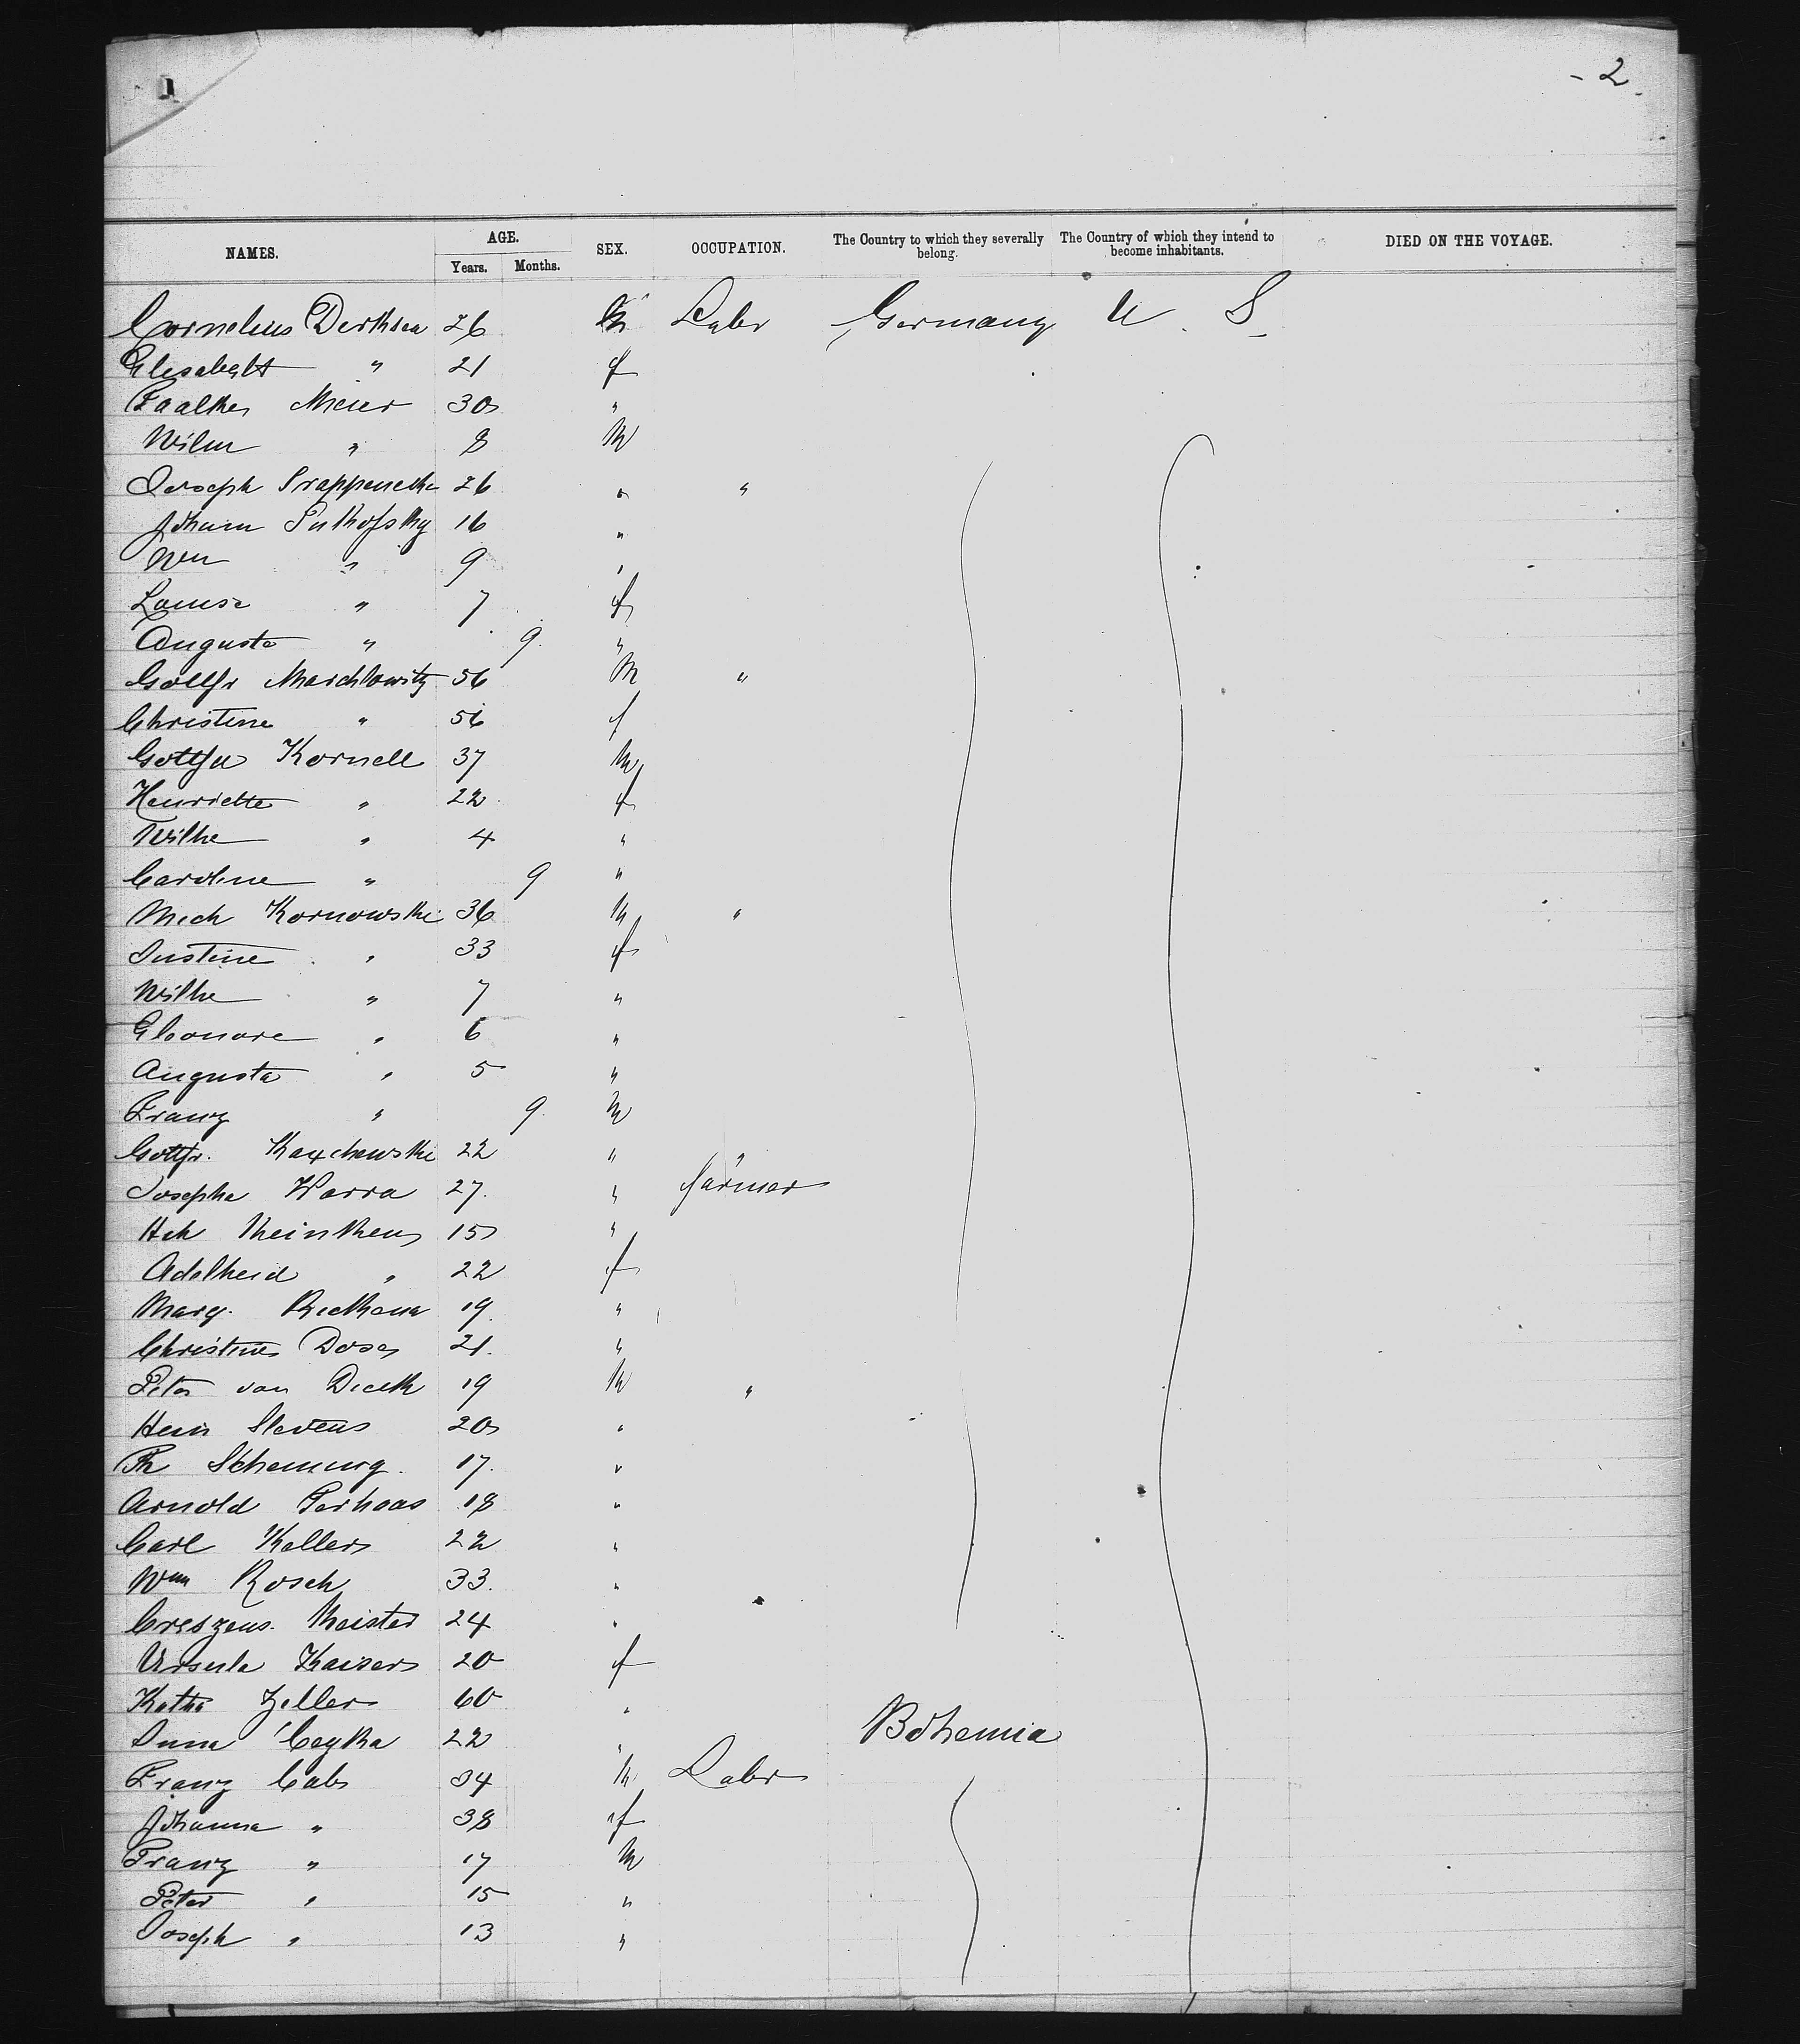 - 2 -
NAMES. AGE. Years. Months. SEX. OCCUPATION. The Country to which they severally belong. The Country of which they intend to become inhabitants. DIED ON THE VOYAGE.
Cornelius Derksen 26 M Labr Germany U. S.
Elisabeth " 21 f
Faalke Meier 30 "
Wilm " 8 M
Joseph 26 " "
Johann 16 "
Wm " 9 "
Louise " 7 f
Augusta " 9 "
Gottfr Marchlowitz 56 M "
Christine " 56 f
Gottfr Kornell 37 M
Henriette " 22 f
Wilhe " 4 "
Caroline " 9 "
Mich Kornowski 36 M "
Justine " 33 f
Wilhe " 7 "
Eleonore " 6 "
Augusta " 5 "
Franz " 9 M
Gottfr. 22 "
Josepha Warra 27 " farmer
Hch 15 "
Adelheid " 22 f
Marg. 19 "
Christine Dose 21 "
Peter van Dieck 19 M "
Hein Stevens 20 "
17 "
Arnold Terhaas 18 "
Carl Keller 22 "
Wm Rosch 33 "
Creszens. Meister 24 "
Ursula Kaiser 20 f
Kathe Zeller 60 "
Anna Ceyka 22 " Bohemia
Franz Cabs 34 M Labr
Johanna " 38 f
Franz " 17 M
Peter " 15 "
Joseph " 13 "